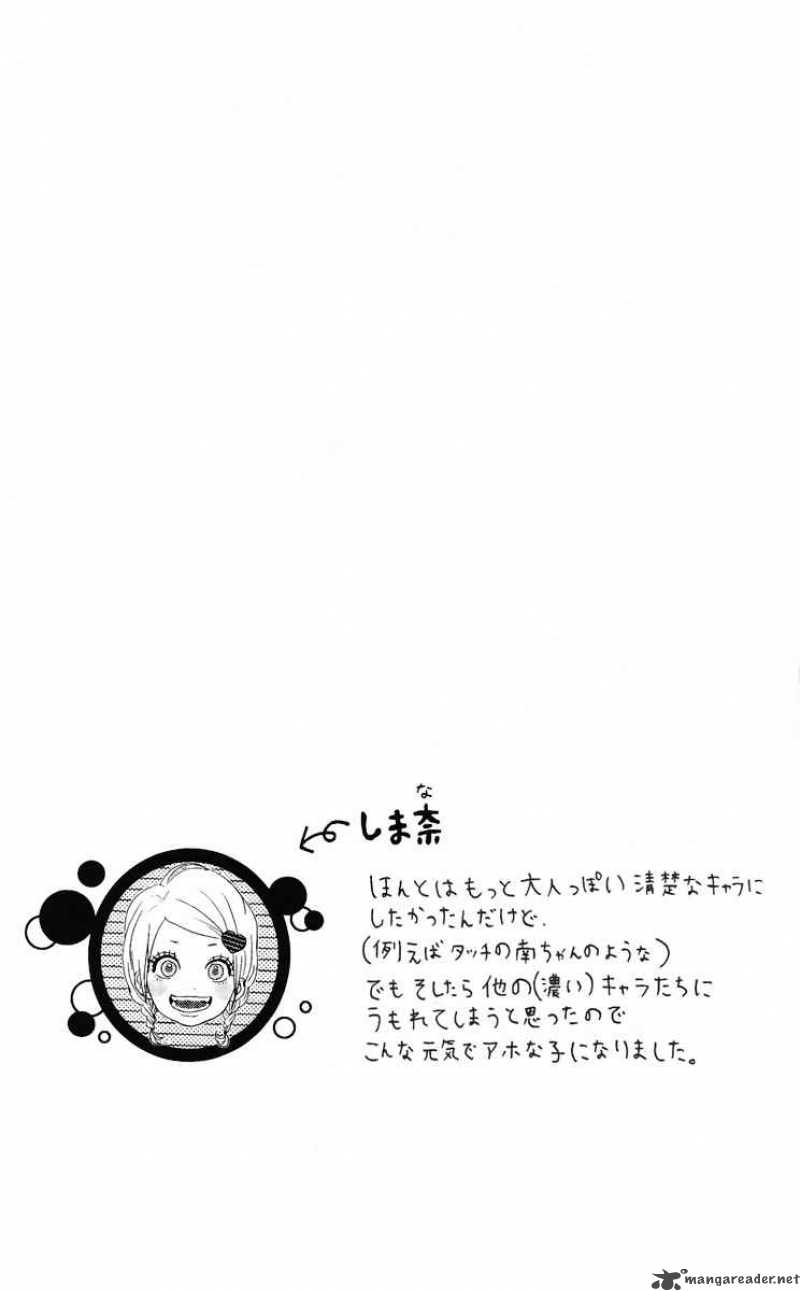 な
しま奈
ほんとはもっと大人っぽい清楚なキャラに
したかったんだけど、
(例えばタッチの南ちゃんのような)
でもそしたら他の(濃い)キャラたちに
うもれてしまうと思ったので
こんな元気でアホな子になりました。
mangareader.net